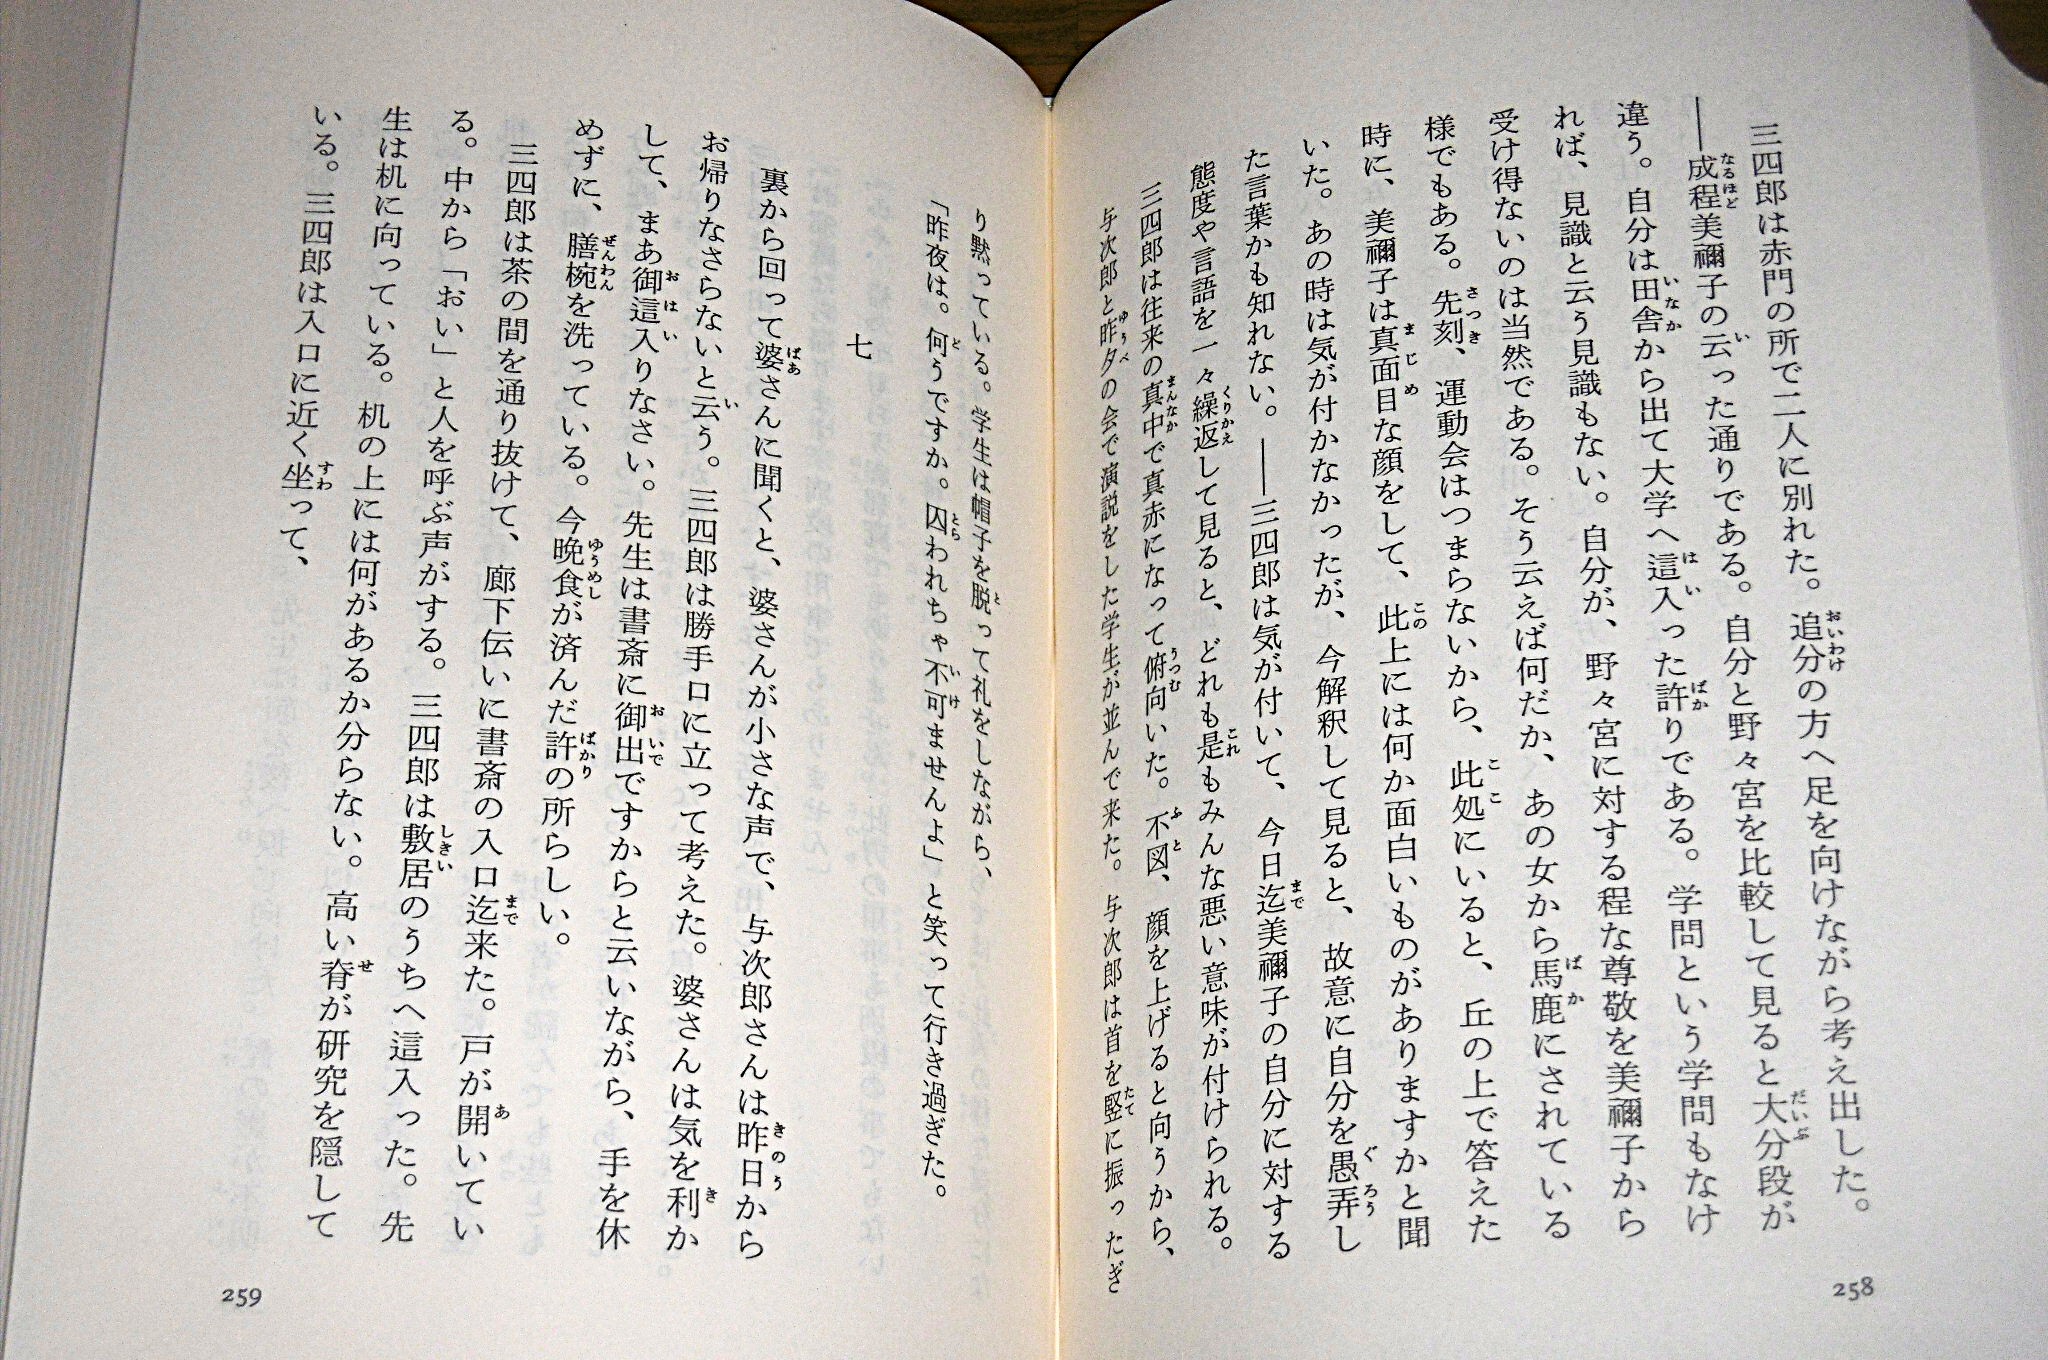 三四郎は赤門の所で二人に別れた。追分の方へ足を向けながら考え出した。
――成程美禰子の云った通りである。自分と野々宮を比較して見ると大分段が
違う。自分は田舎から出て大学へ這入った許りである。学問という学問もなけ
れば、見識と云う見識もない。自分が、野々宮に対する程な尊敬を美禰子から
受け得ないのは当然である。そう云えば何だか、あの女から馬鹿にされている
様でもある。先刻、運動会はつまらないから、此処にいると、丘の上で答えた
時に、美禰子は真面目な顔をして、此上には何か面白いものがありますかと聞
いた。あの時は気が付かなかったが、今解釈して見ると、故意に自分を愚弄し
た言葉かも知れない。――三四郎は気が付いて、今日迄美禰子の自分に対する
態度や言語を一々繰返して見ると、どれも是もみんな悪い意味が付けられる。
三四郎は往来の真中で真赤になって俯向いた。不図、顔を上げると向うから、
与次郎と昨夕の会で演説をした学生が並んで来た。与次郎は首を竪に振ったぎ
258
り黙っている。学生は帽子を脱って礼をしながら、
「昨夜は。何うですか。囚われちゃ不可ませんよ」と笑って行き過ぎた。
七
裏から回って婆さんに聞くと、婆さんが小さな声で、与次郎さんは昨日から
お帰りなさらないと云う。三四郎は勝手口に立って考えた。婆さんは気を利か
して、まあ御這入りなさい。先生は書斎に御出ですからと云いながら、手を休
めずに、膳椀を洗っている。今晩食が済んだ許の所らしい。
三四郎は茶の間を通り抜けて、廊下伝いに書斎の入口迄来た。戸が開いてい
る。中から「おい」と人を呼ぶ声がする。三四郎は敷居のうちへ這入った。先
生は机に向っている。机の上には何があるか分らない。高い脊が研究を隠して
いる。三四郎は入口に近く坐って、
259